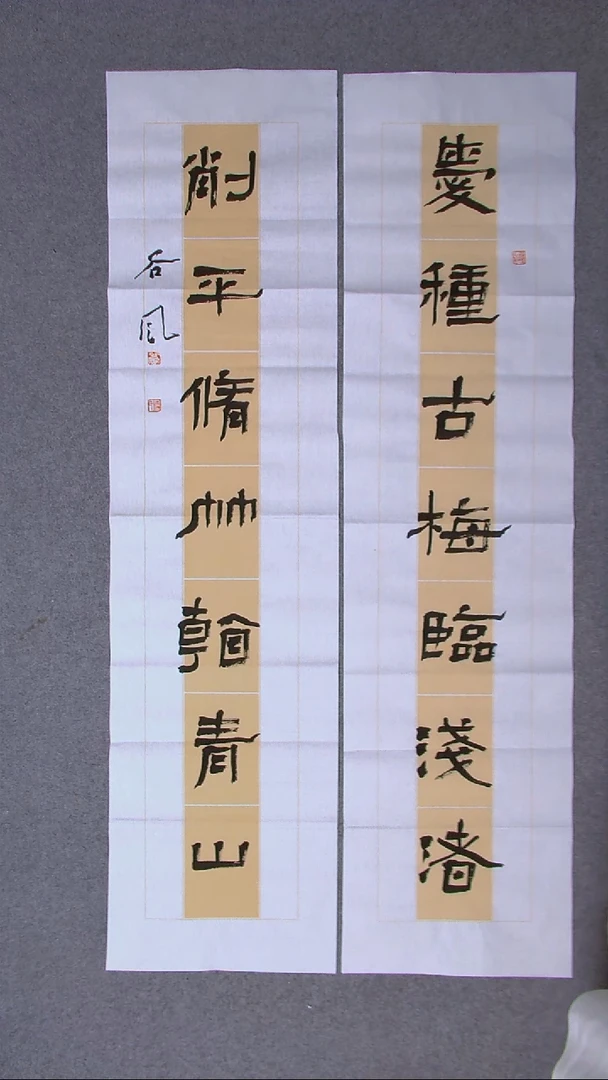 愛種古梅臨淺渚
削平脩竹看青山
谷风